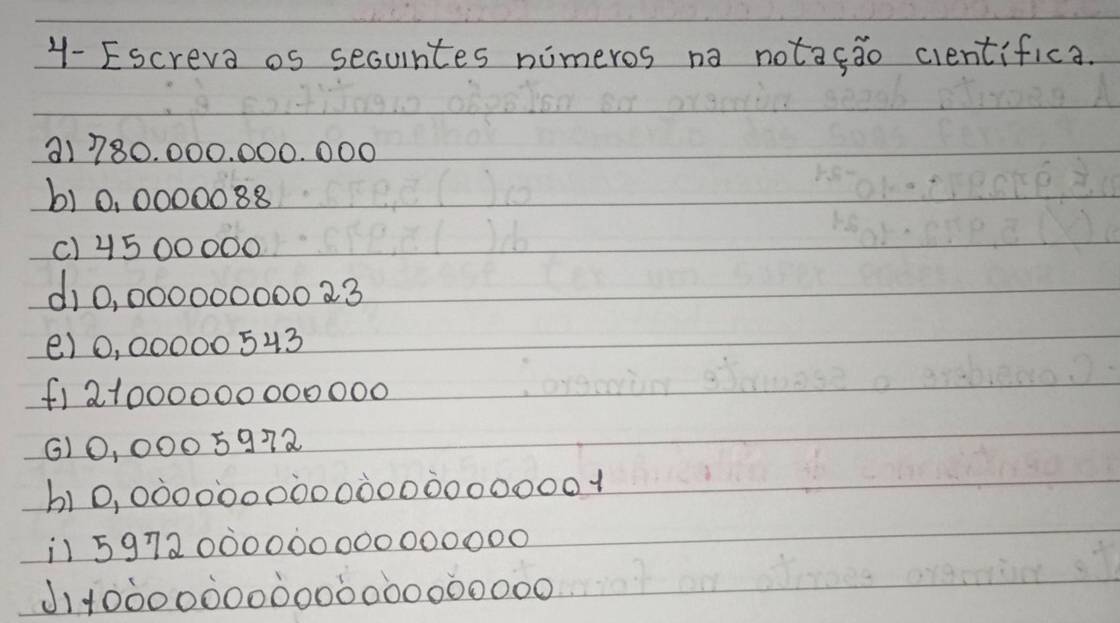 4- Escreva os seguintes números na notação científica.
a) 780.000.000.000
b) 0,0000088
c) 4500000
d) 0,00000000023
e) 0,00000543
f) 21000000000000
G) 0,0005972
h) 0,000000000000000000001
i) 5972000000000000000
j) 1000000000000000000000